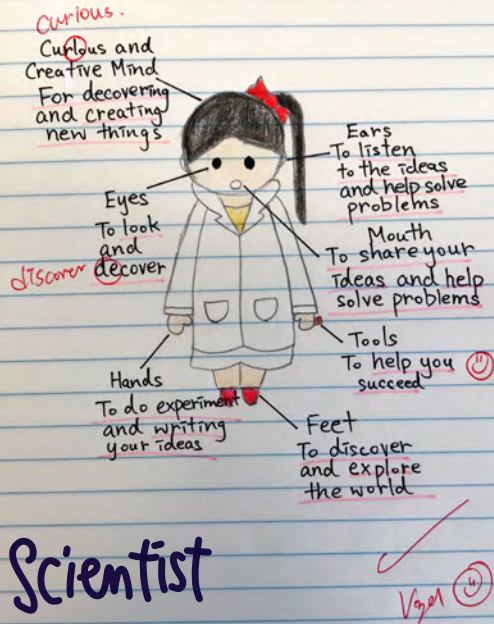 curious.
Curlous and
Creative Mind
For decovering
and creating
new things
Ears
To listen
to the ideas
and help solve
problems
Eyes
To look
and
discover decover
Mouth
To share your
ideas and help
solve problems
Tools
To help you
succeed
Hands
To do experiment
and writing
your ideas
Feet
To discover
and explore
the world
Scientist